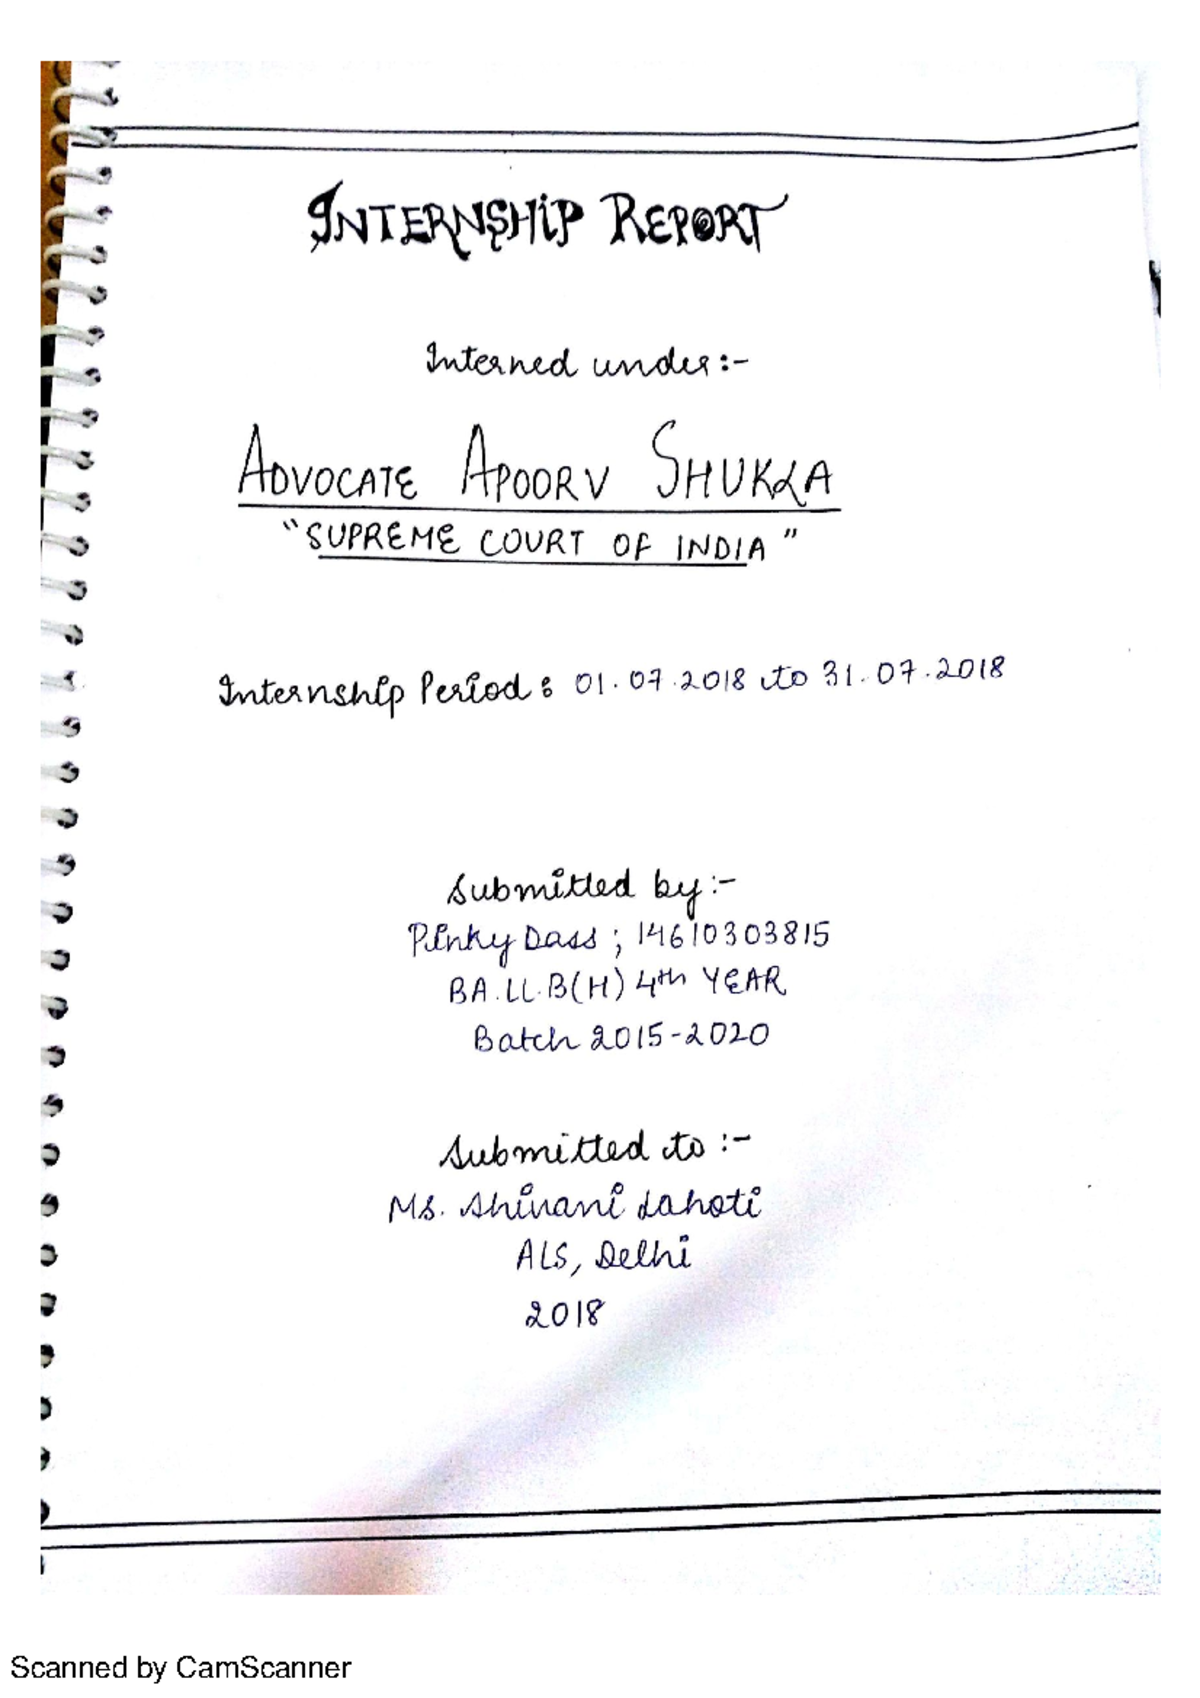 INTERNSHIP REPORT
Interned under:-
ADVOCATE APOORV SHUKLA
"SUPREME COURT OF INDIA"
Internship Period: 01.07.2018 to 31.07.2018
Submitted by:-
Pinky Dass; 14610303815
BA.LL.B(H) 4th YEAR
Batch 2015-2020
Submitted to:-
Ms. Shivani Lahoti
ALS, Delhi
2018
Scanned by CamScanner